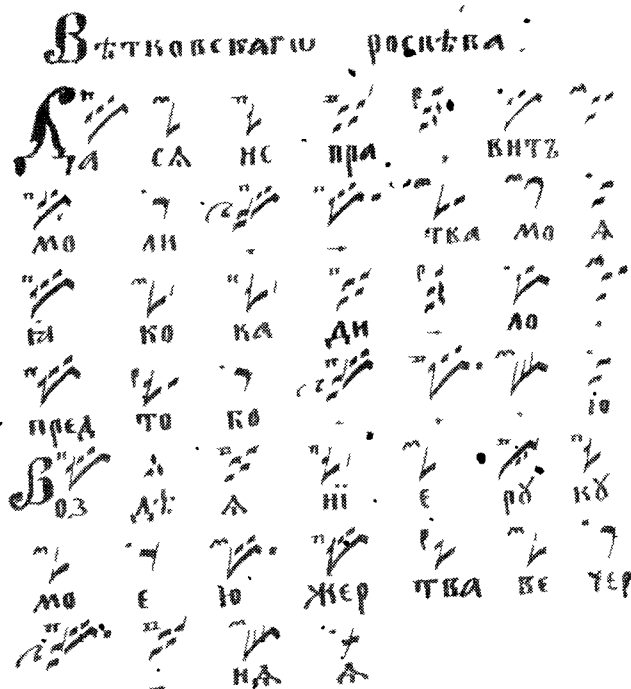 Вѣтковскагѡ роспѣва.
Да сѧ ис пра витъ
мо ли тва мо ѧ
ꙗ ко ка ди ло
пред то бо ю
Воз дѣ ѧ нї е рꙋ кꙋ
мо е ю жер тва ве чер
нѧ ѧ